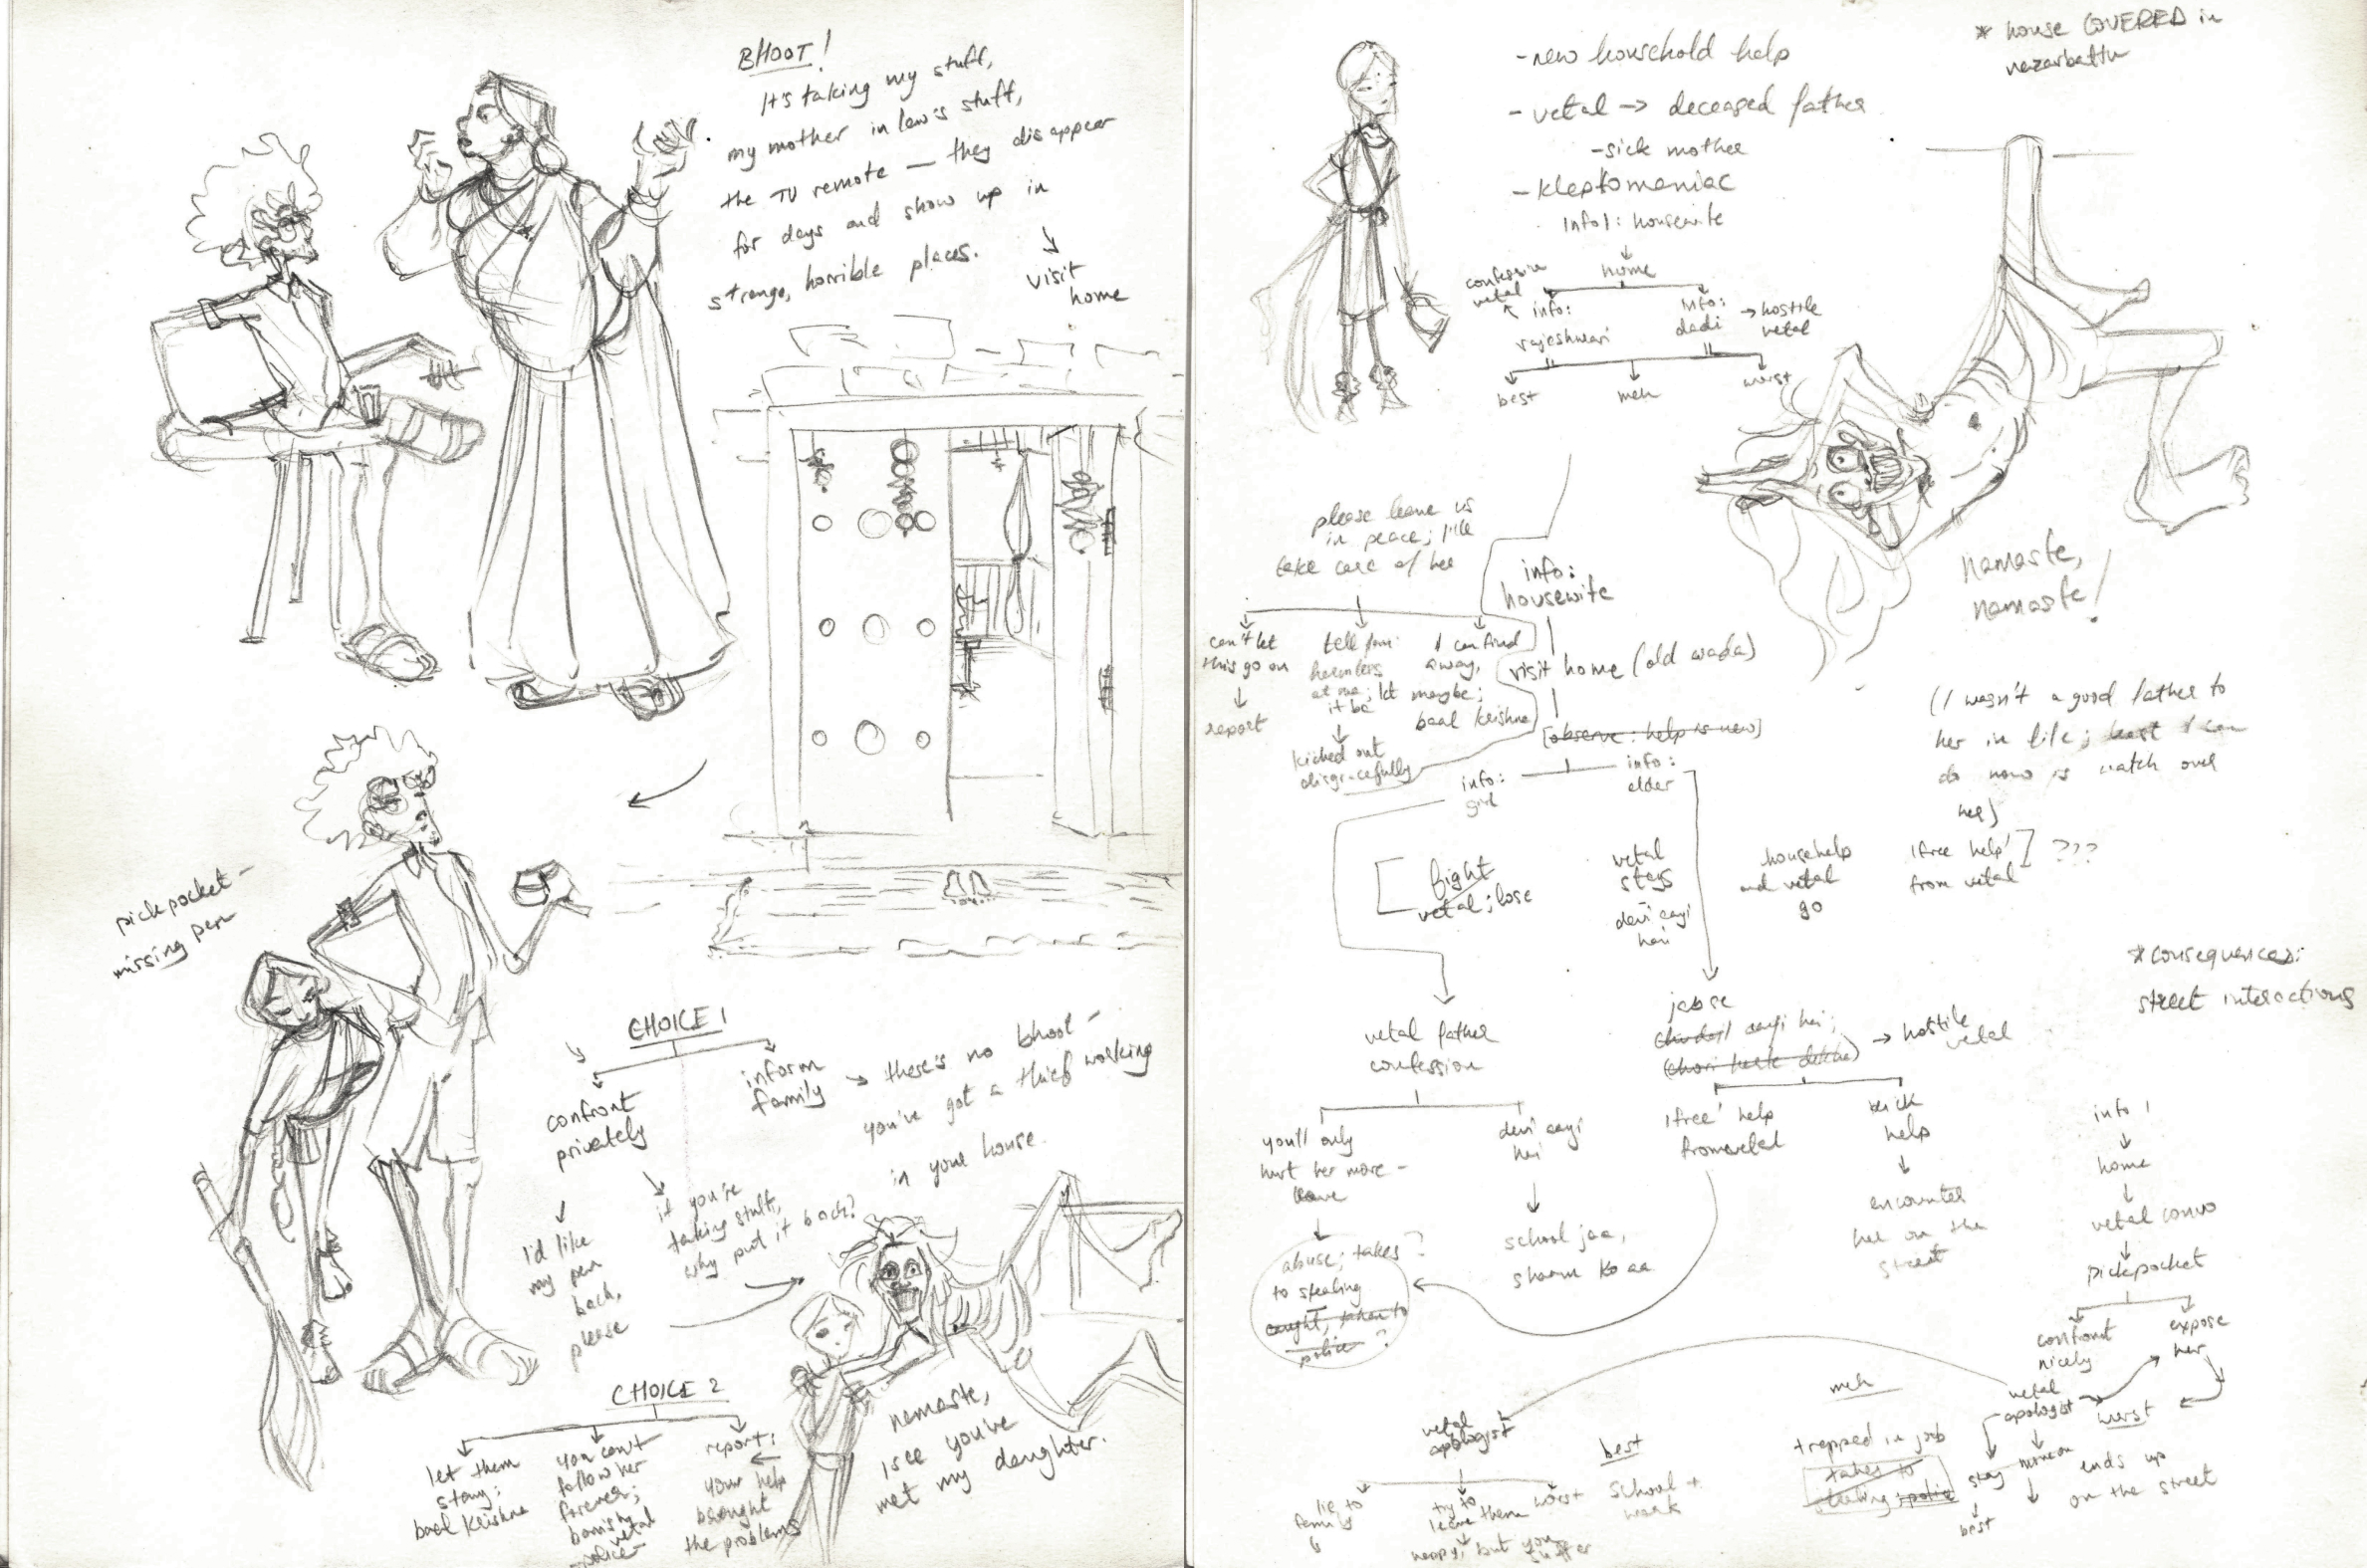 BHOOT!
It's taking my stuff,
my mother in law's stuff,
the TV remote — they disappear
for days and show up in
strange, horrible places.
↓
visit
home
pickpocket -
missing pen
CHOICE 1
confront
privately
inform
family → there's no bhoot -
you've got a thief working
in your house.
I'd like
my pen
back,
please
if you're
taking stuff,
why put it back?
CHOICE 2
let them
stay:
baal krishna
you can't
follow her
forever;
banish
vetal
police
report:
your help
brought
the problems
namaste,
I see you've
met my daughter.
* house COVERED in
nazarbattu
- new household help
- vetal → deceased father
- sick mother
- kleptomaniac
info 1: housewife
↓
home
confession
vetal
info:
rajeshwari
info:
dadi
→ hostile
vetal
best
meh
worst
namaste,
namaste!
please leave us
in peace; I'll
take care of her
can't let
this go on
↓
report
tell fam:
harmless
at me; let
it be
↓
kicked out
disgracefully
I can find
a way,
maybe;
baal krishna
info:
housewife
visit home (old wada)
[observe: help is new]
info:
girl
info:
elder
(I wasn't a good father to
her in life; least I can
do now is watch over
her)
fight
vetal; lose
vetal
stays
devi aayi
hai
househelp
and vetal
go
'free help'
from vetal
] ???
* consequences:
street interactions
vetal father
confession
jabse
chudail aayi hai;
(chori karke dekha)
→ hostile
vetal
you'll only
hurt her more -
leave
devi aayi
hai
↓
school jaa,
sharm ko aa
'free' help
from vetal
kick
help
↓
encounter
her on the
street
abuse; takes ?
to stealing
caught, taken to
police ?
info 1
↓
home
↓
vetal convo
↓
pickpocket
confront
nicely
expose
her
vetal
apologist
worst
ends up
on the street
stay
best
vetal
apologist
lie to
family
try to
leave them
happy, but you
suffer
worst
best
school +
work
meh
trapped in job
takes to
stealing; police